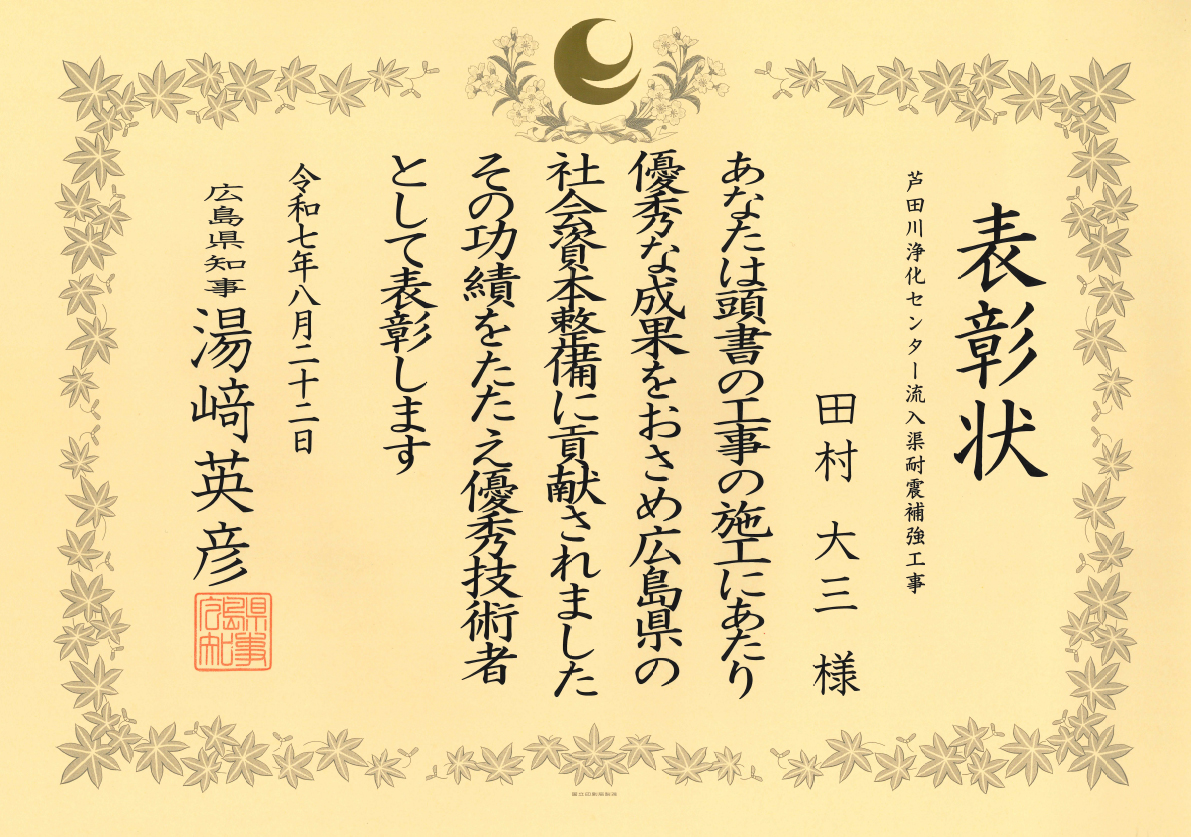 表彰状
芦田川浄化センター流入渠耐震補強工事
田村 大三 様
あなたは頭書の工事の施工にあたり
優秀な成果をおさめ広島県の
社会資本整備に貢献されました
その功績をたたえ優秀技術者
として表彰します
令和七年八月二十二日
広島県知事 湯﨑英彦
県事
島
広知